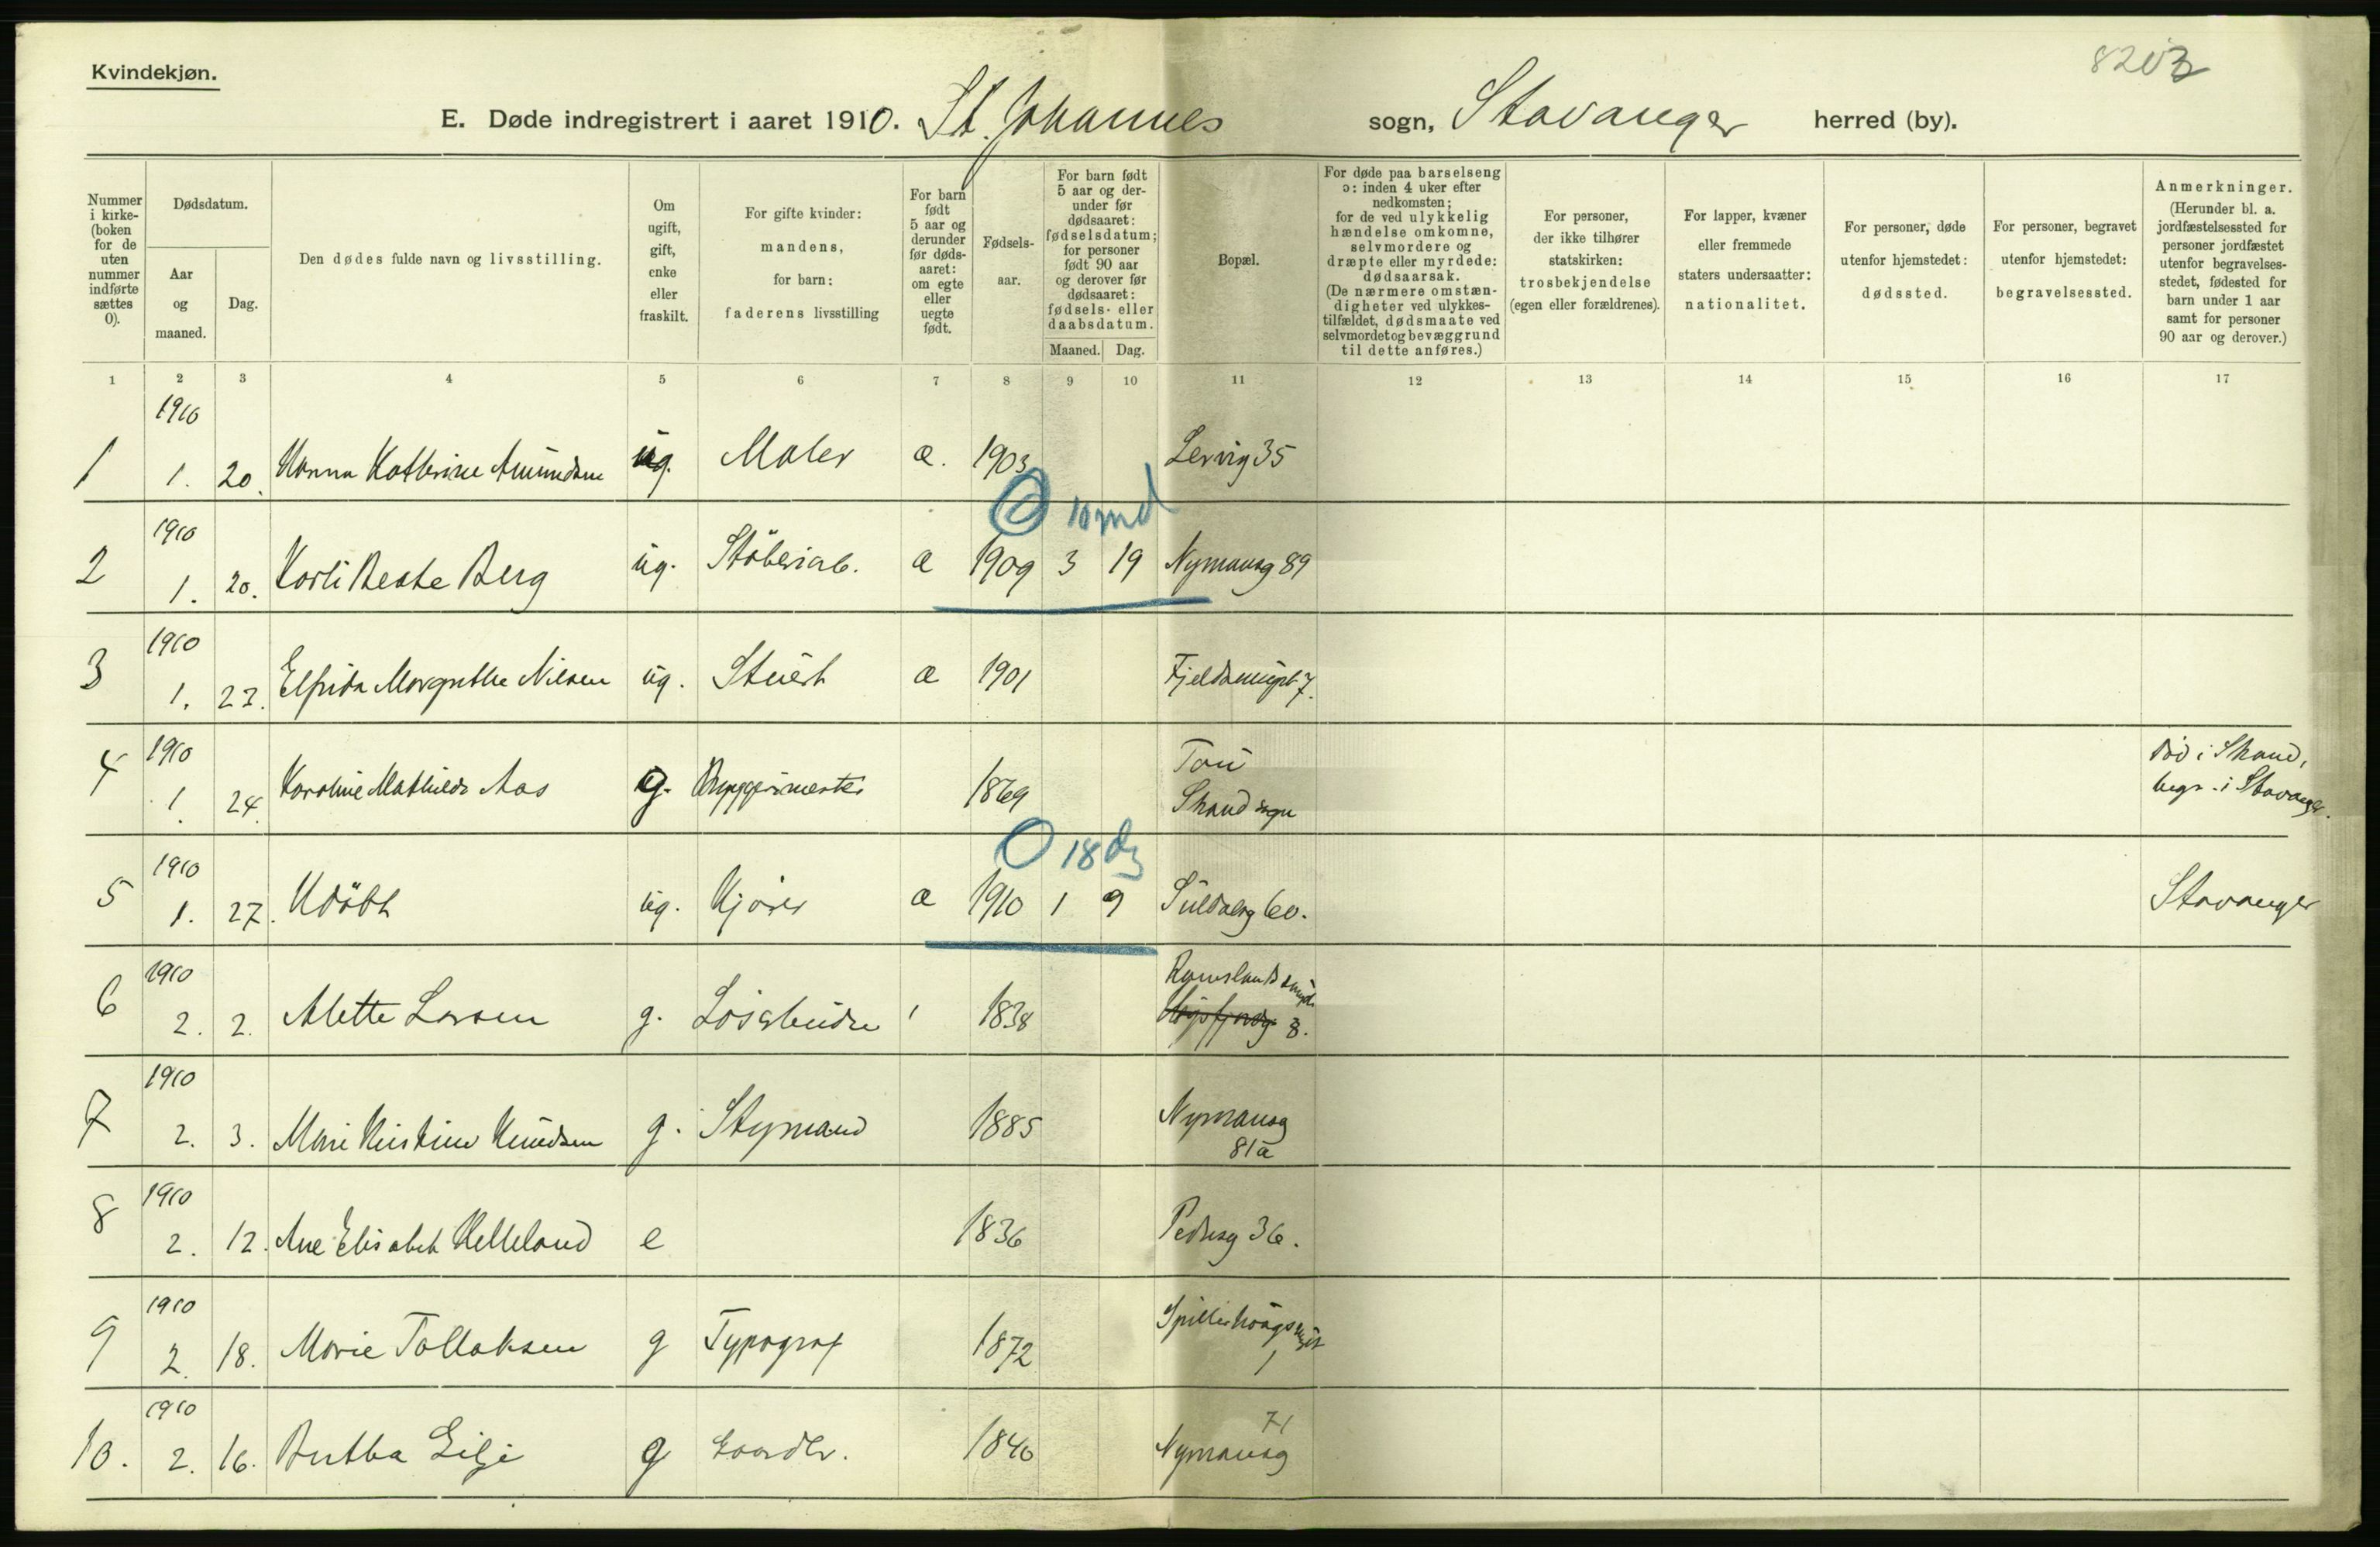 Kvindekjøn.
8203
E. Døde indregistrert i aaret 1910. St. Johannes sogn, Stavanger herred (by).
Nummer i kirke-(boken for de uten nummer indførte sættes 0).
Dødsdatum.
Aar og maaned.
Dag.
Den dødes fulde navn og livsstilling.
Om ugift, gift, enke eller fraskilt.
For gifte kvinder: mandens, for barn: faderens livsstilling
For barn født 5 aar og derunder før døds-aaret: om egte eller uegte født.
Fødsels-aar.
For barn født 5 aar og der-under før dødsaaret: fødselsdatum; for personer født 90 aar og derover før dødsaaret: fødsels- eller daabsdatum.
Maaned. Dag.
Bopæl.
For døde paa barselseng ɔ: inden 4 uker efter nedkomsten; for de ved ulykkelig hændelse omkomne, selvmordere og dræpte eller myrdede: dødsaarsak. (De nærmere omstæn-digheter ved ulykkes-tilfældet, dødsmaate ved selvmordet og bevæggrund til dette anføres.)
For personer, der ikke tilhører statskirken: trosbekjendelse (egen eller forældrenes).
For lapper, kvæner eller fremmede staters undersaatter: nationalitet.
For personer, døde utenfor hjemstedet: dødssted.
For personer, begravet utenfor hjemstedet: begravelsessted.
Anmerkninger. (Herunder bl. a. jordfæstelsessted for personer jordfæstet utenfor begravelses-stedet, fødested for barn under 1 aar samt for personer 90 aar og derover.)
1 2 3 4 5 6 7 8 9 10 11 12 13 14 15 16 17
1910
1 1. 20. Hanna Kathrine Amundsen ug. Maler æ. 1903 Lervig 35
10 md
1910
2 1. 20. Karli Beate Berg ug. Støberiarb. æ 1909 3 19 Nymansg 89
1910
3 1. 22. Elfrida Margrethe Nilsen ug. Stuert æ 1901 Fjeldsmugt 7.
1910 Tau død i Strand,
4 1. 24. Karoline Mathilde Aas g. Bryggerimester 1869 Strand sogn begr. i Stavanger.
18 dg
1910
5 1. 27. Udøbt ug. Kjører æ 1910 1 9 Suldalsg 60. Stavanger
1910 Ramslandsmugt
6 2. 2. Alette Larsen g. Løsarbeider 1838 8.
1910
7 2. 3. Marie Kristine Knudsen g. Styrmand 1885 Nymansg
81a
1910
8 2. 12. Ane Elisabeth Helleland e 1836 Pedersg 36.
1910
9 2. 18. Marie Tollaksen g Typograf 1872 1
1910 71
10. 2. 16. Bertha Lilje g Gaardbr. 1840 Nymansg